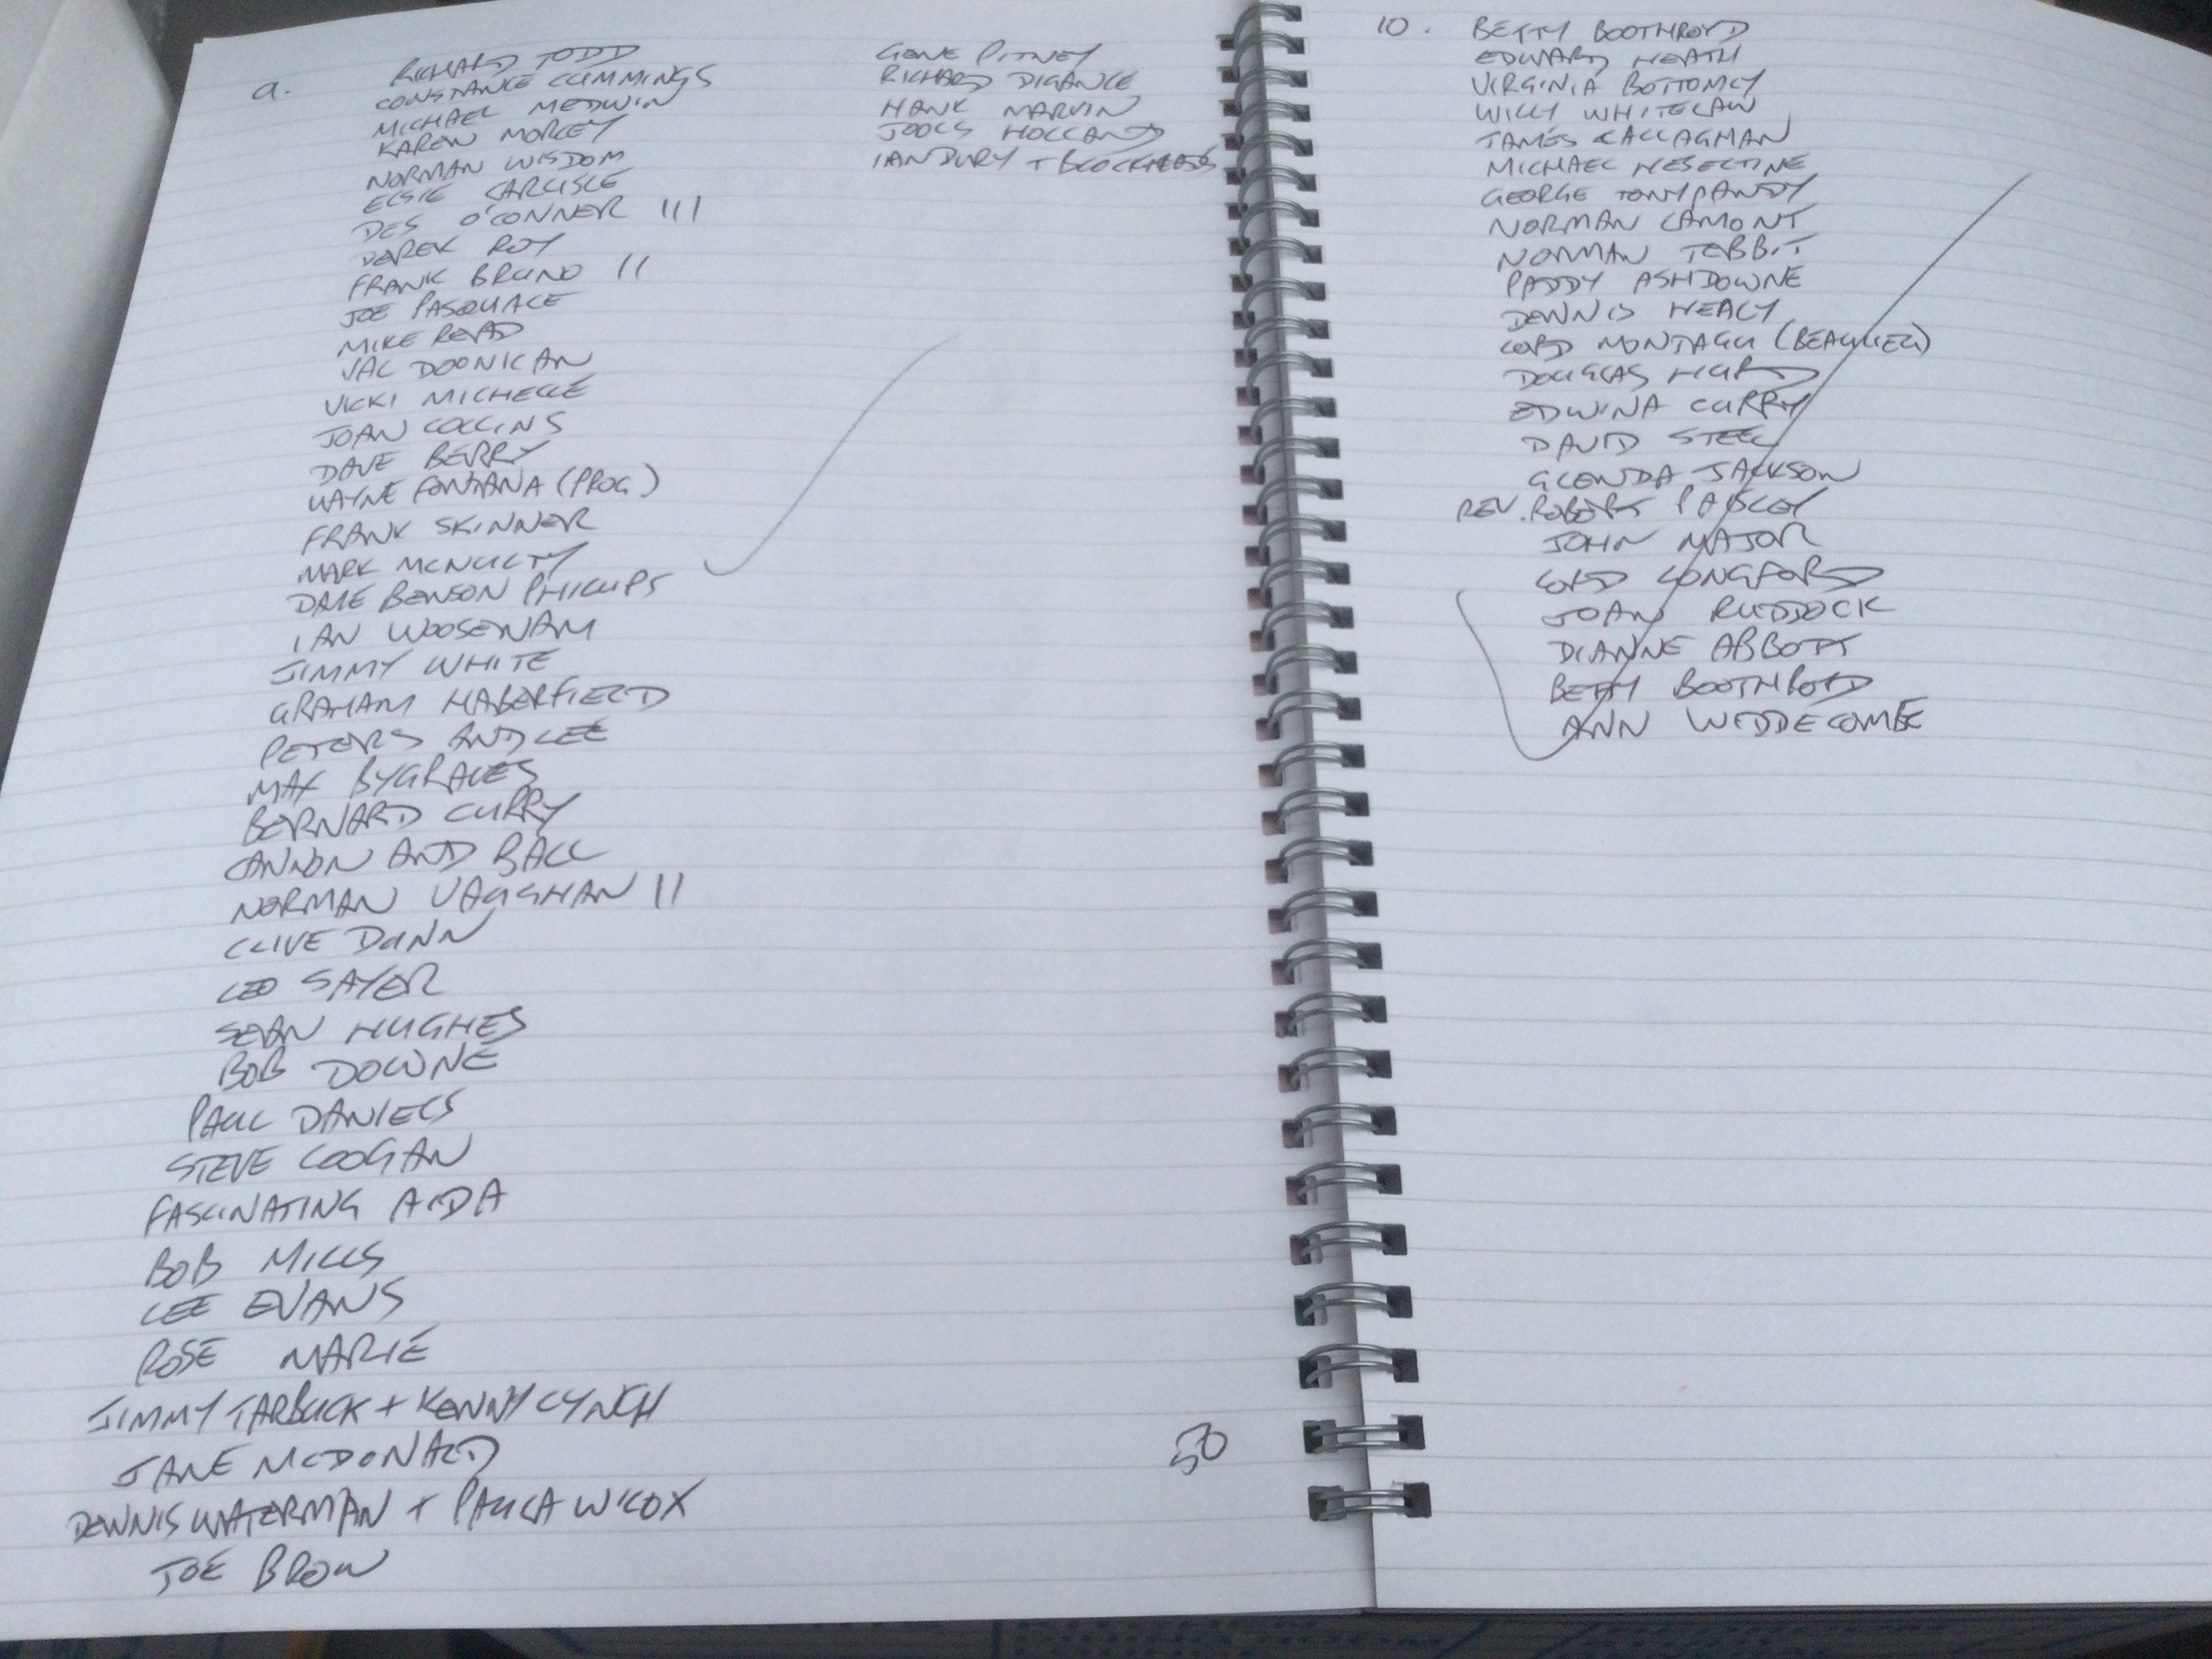 9.
RICHARD TODD
CONSTANCE CUMMINGS
MICHAEL MEDWIN
KAREN MORLEY
NORMAN WISDOM
ELSIE CARLISLE
DES O'CONNER III
DEREK ROY
FRANK BRUNO II
JOE PASQUALE
MIKE READ
VAL DOONICAN
VICKI MICHELLE
JOAN COLLINS
DAVE BERRY
WAYNE FONTANA (PROG)
FRANK SKINNER
MARK MCNULTY
DAVE BENSON PHILLIPS
IAN WOOSENAM
JIMMY WHITE
GRAHAM HABERFIELD
PETERS AND LEE
MAX BYGRAVES
BERNARD CURRY
CANNON AND BALL
NORMAN VAUGHAN II
CLIVE DUNN
LEO SAYER
SEAN HUGHES
BOB DOWNE
PAUL DANIELS
STEVE COOGAN
FASCINATING AIDA
BOB MILLS
LEE EVANS
ROSE MARIE
JIMMY TARBUCK + KENNY LYNCH
JANE MCDONALD
DENNIS WATERMAN + PAULA WILCOX
JOE BROW
GENE PITNEY
RICHARD DIGANCE
HANK MARVIN
JOOLS HOLLAND
IAN DURY + BLOCKHEADS
50
10. BETTY BOOTHROYD
EDWARD HEATH
VIRGINIA BOTTOMLY
WILLY WHITELAW
JAMES CALLAGHAN
MICHAEL HESELTINE
GEORGE TONYPANDY
NORMAN LAMONT
NORMAN TEBBIT
PADDY ASHDOWNE
DENNIS HEALY
LORD MONTAGU (BEAULIEU)
DOUGLAS HURD
EDWINA CURRY
DAVID STEEL
GLENDA JACKSON
REV. ROBERT PAISLEY
JOHN MAJOR
LORD LONGFORD
JOAN RUDDOCK
DIANNE ABBOTT
BETTY BOOTHROYD
ANN WIDDECOMBE